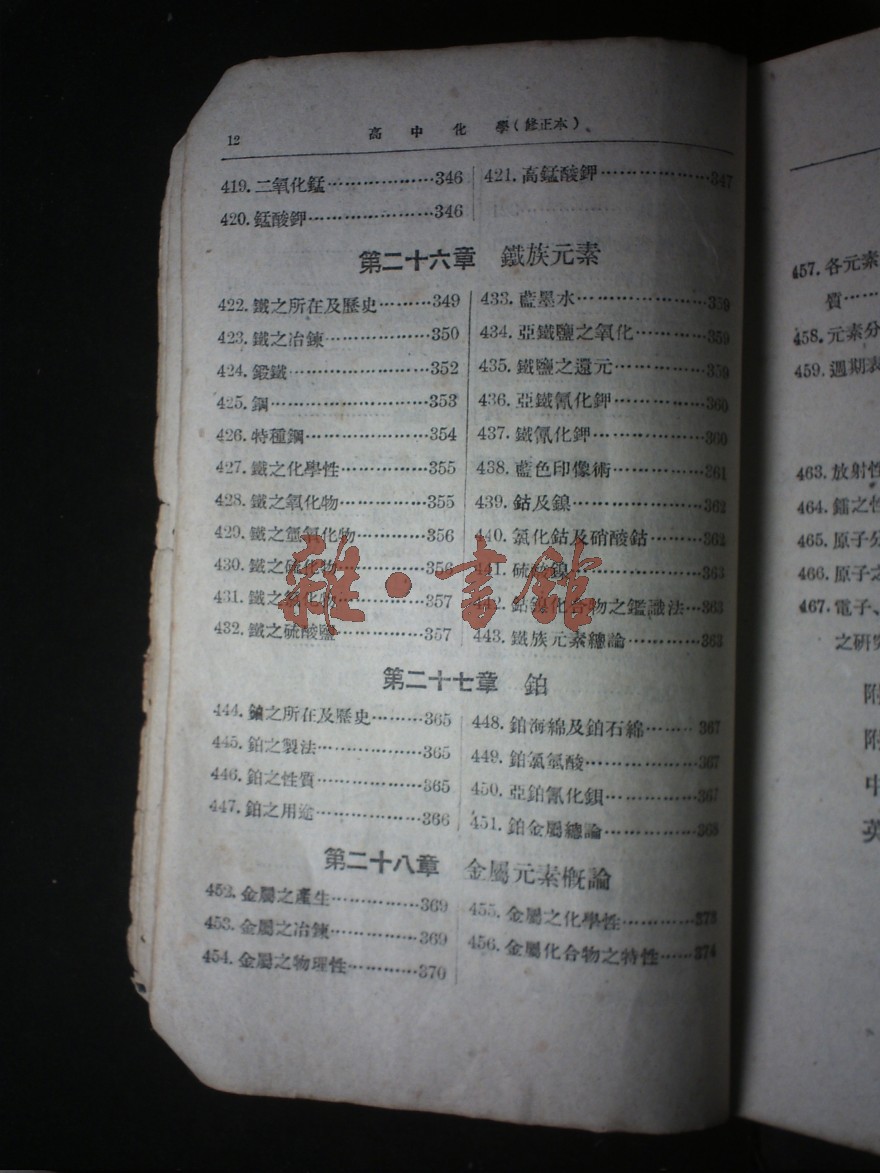 12 高中化學(修正本)
419.二氧化錳··················346
420.錳酸鉀·····················346
421.高錳酸鉀···················347
第二十六章 鐵族元素
422.鐵之所在及歷史·········349
423.鐵之冶鍊··················350
424.鍛鐵························352
425.鋼···························353
426.特種鋼·····················354
427.鐵之化學性···············355
428.鐵之氧化物···············355
429.鐵之氫氧化物············356
430.鐵之硫化物···············356
431.鐵之氯化物···············357
432.鐵之硫酸鹽···············357
433.藍墨水·····················359
434.亞鐵鹽之氧化············359
435.鐵鹽之還元···············359
436.亞鐵氰化鉀···············360
437.鐵氰化鉀··················360
438.藍色印像術···············361
439.鈷及鎳·····················362
440.氯化鈷及硝酸鈷·········362
441.硫酸鎳·····················363
442.鈷鎳化合物之鑑識法···363
443.鐵族元素總論············363
第二十七章 鉑
444.鉑之所在及歷史·········365
445.鉑之製法··················365
446.鉑之性質··················365
447.鉑之用途··················366
448.鉑海綿及鉑石綿········367
449.鉑氯氫酸··················367
450.亞鉑氰化鋇···············367
451.鉑金屬總論···············368
第二十八章 金屬元素概論
452.金屬之產生···············369
453.金屬之冶鍊···············369
454.金屬之物理性············370
455.金屬之化學性············373
456.金屬化合物之特性······374
457.各元素
質······
458.元素分
459.週期表
463.放射性
464.鐳之性
465.原子分
466.原子之
467.電子、
之研究
附
附
中
英
雜·書館